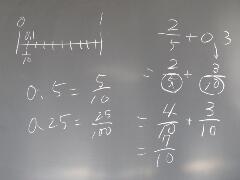 0 1
0.1
1/10
0.5 = 5/10
0.25 = 25/100
2/5 + 0,3
= 2/5 + 3/10
= 4/10 + 3/10
= 7/10